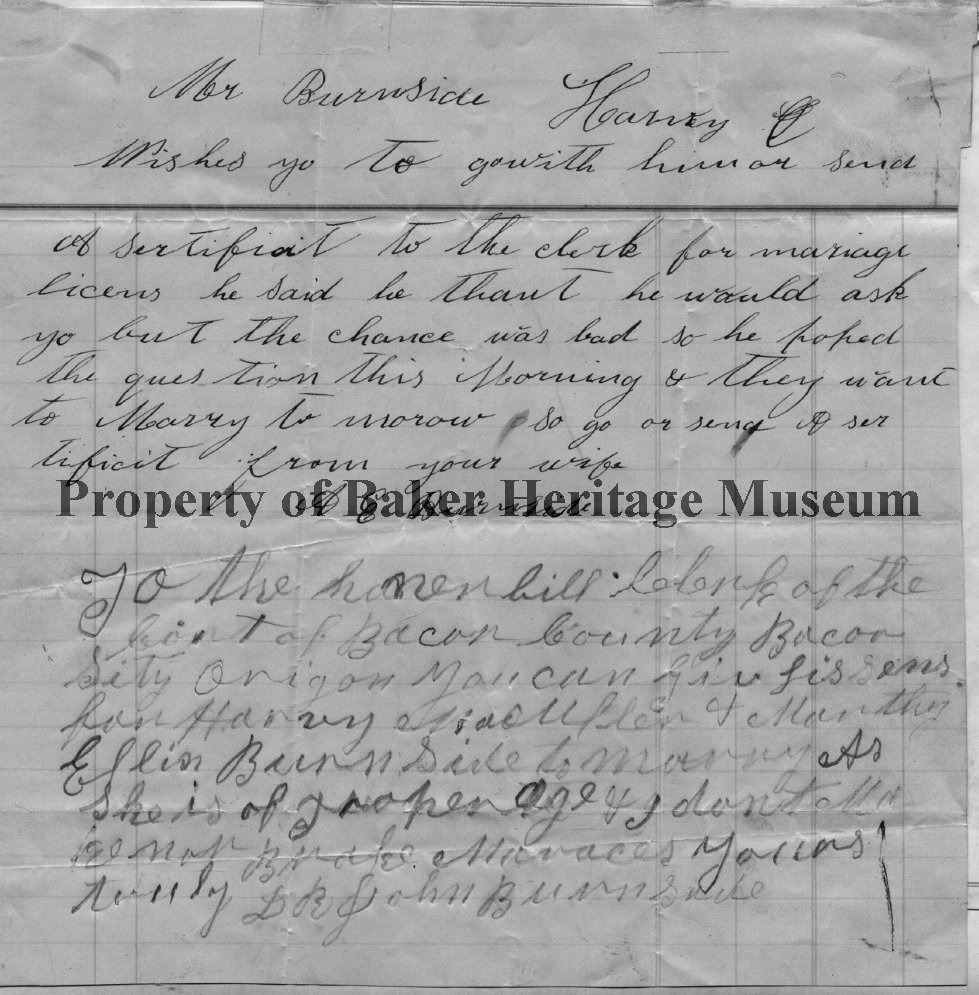 Mr Burnside Harvy
Wishes yo to go with him or send
A sertificit to the clerk for mariage
licens he said he thaut he would ask
yo but the chance was bad so he poped
the question this Morning & they want
to Marry to morow so go or send A ser
tificit from your wife
A E Burnside
Property of Baker Heritage Museum
To the honer bill Clerk of the
Cort of Bacor County Bacor
Sity Origon You can giv Lissens
for Harvy & Marthy
Ellin Burn Side to marry As
She is of proper age & I dont Ma
ke nor Brake Maraces Yours
truly DR John Burnside